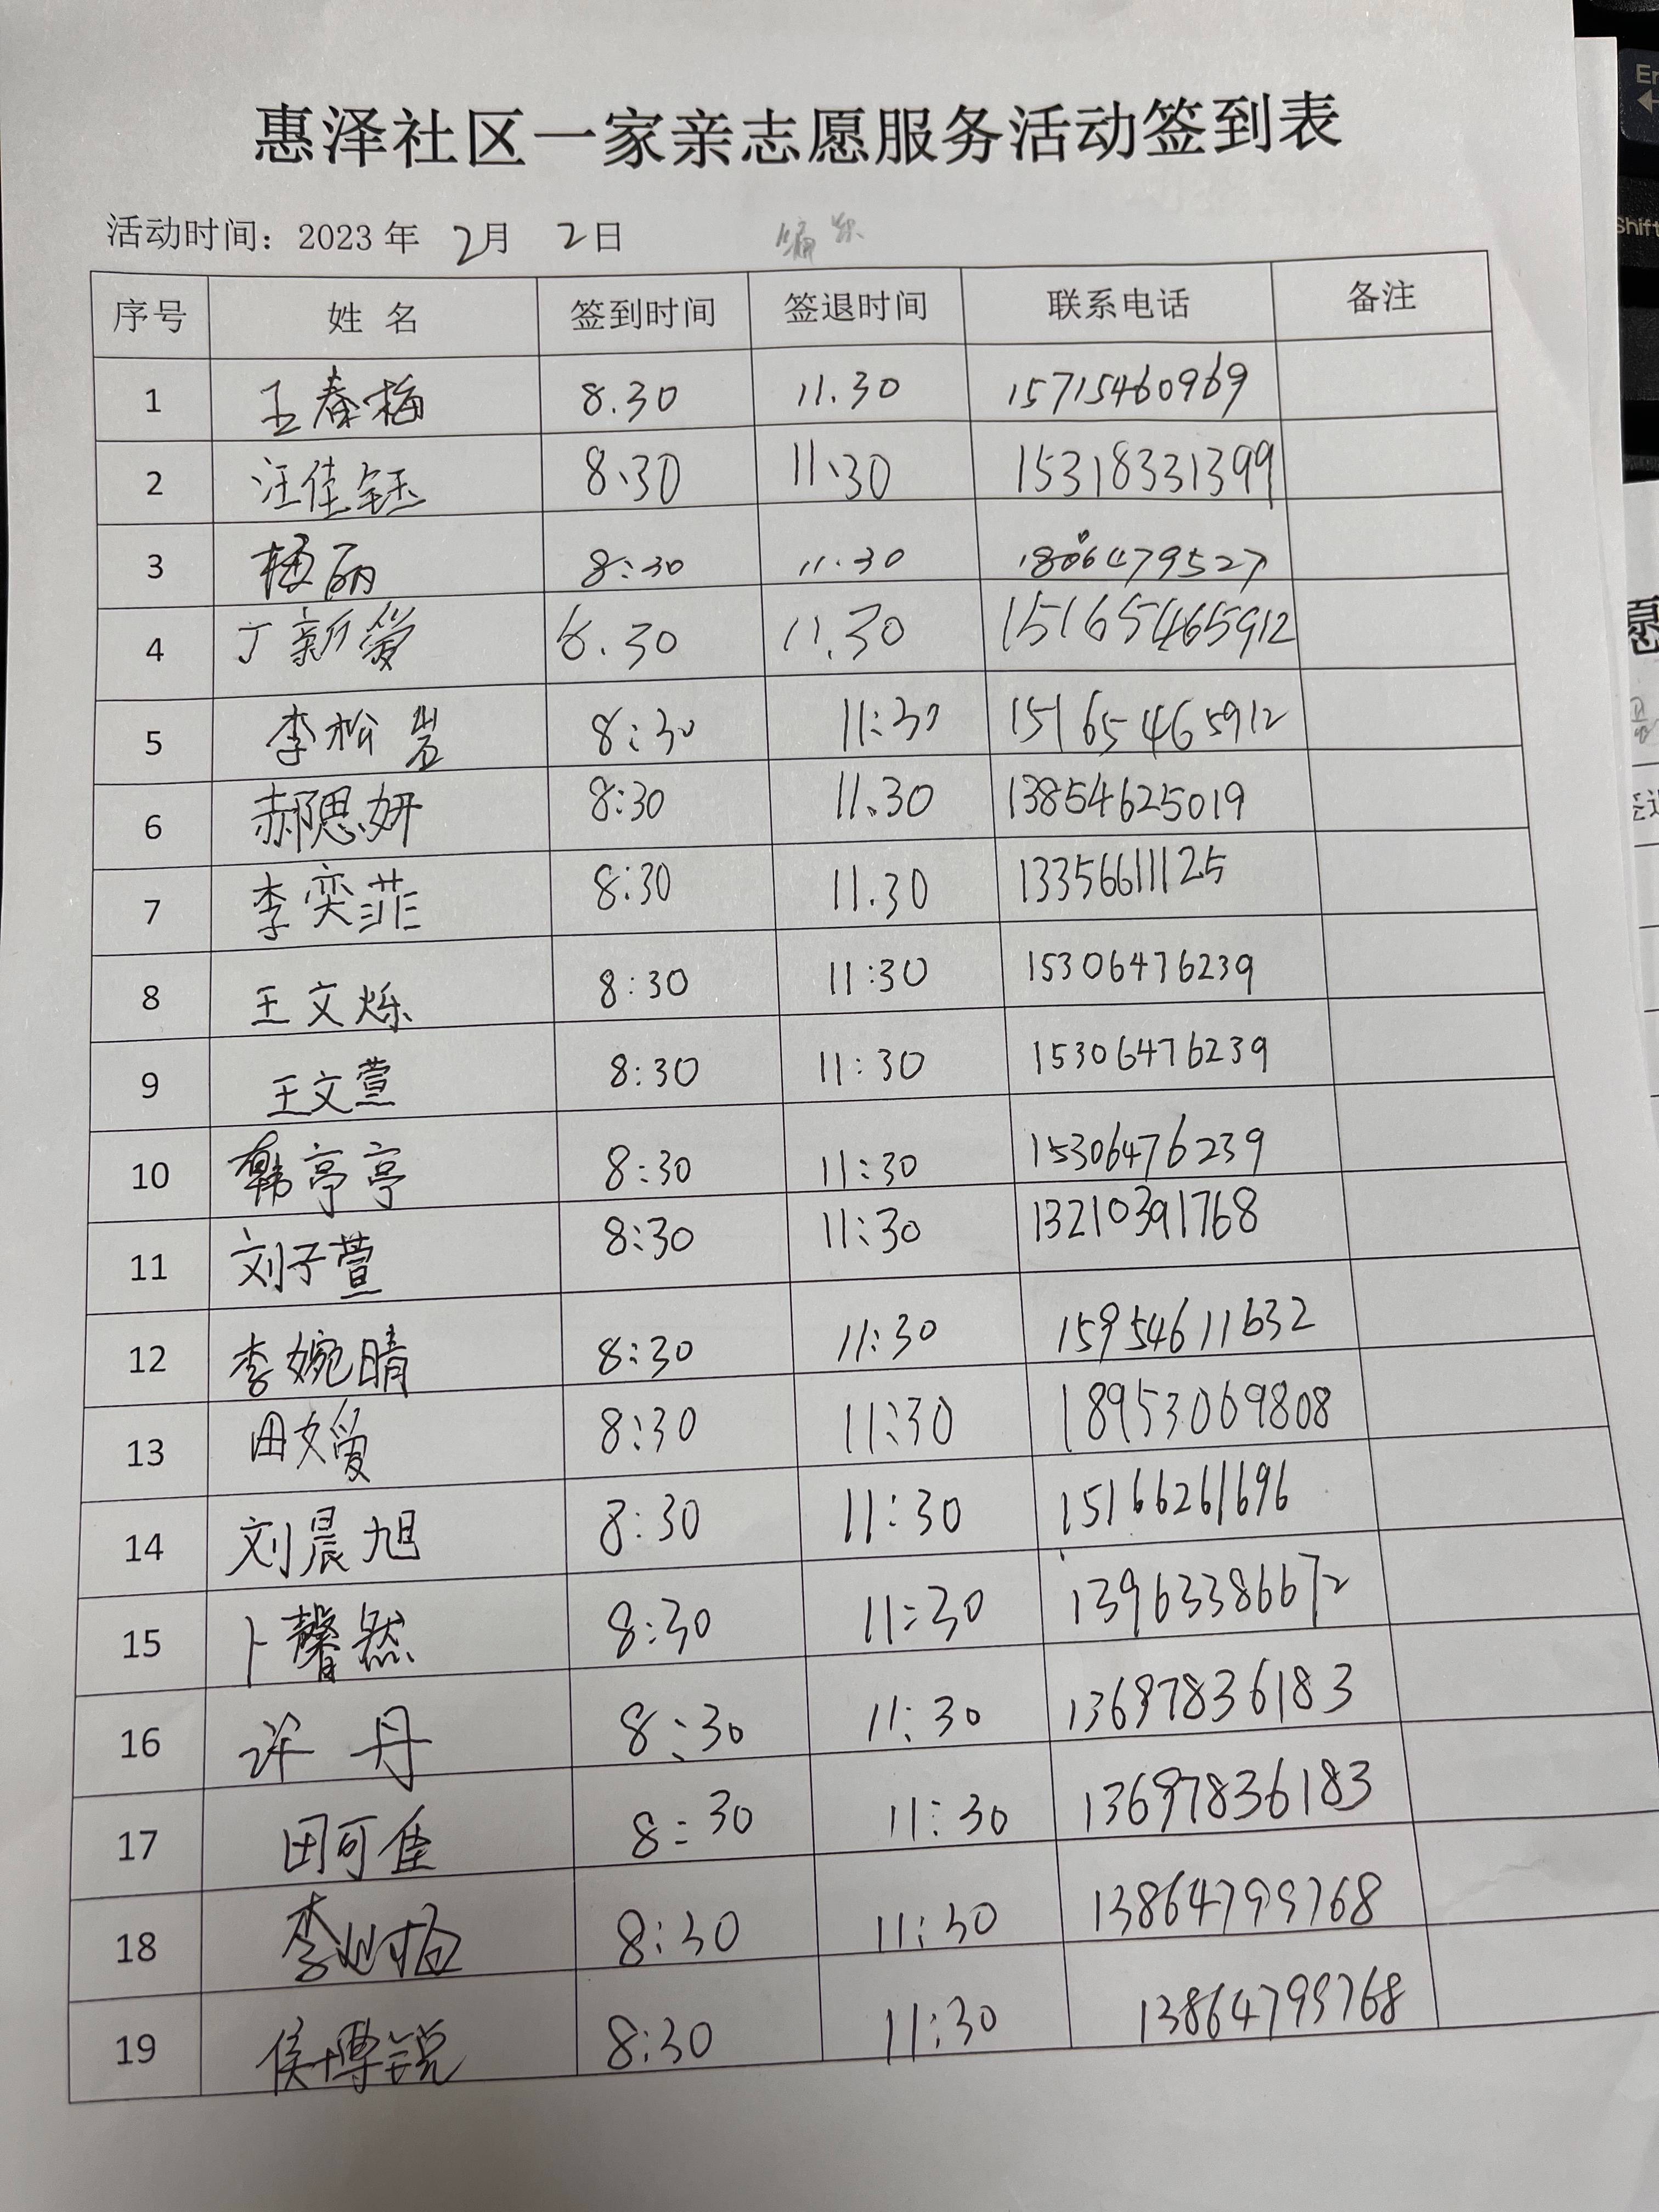 惠泽社区一家亲志愿服务活动签到表
活动时间：2023 年 2月 2日
序号 姓 名 签到时间 签退时间 联系电话 备注
1 王春梅 8.30 11.30 15715460969
2 汪佳钰 8.30 11.30 15318331399
3 丽 8:30 11.30
4 丁新爱 8.30 11.30 15165465912
5 李松岩 8:30 11:30 15165465912
6 郝思妍 8:30 11.30 13854625019
7 李奕菲 8:30 11.30 13356611125
8 王文烁 8:30 11:30 15306476239
9 王文萱 8:30 11:30 15306476239
10 韩亭亭 8:30 11:30 15306476239
11 刘子萱 8:30 11:30 13210391768
12 李婉晴 8:30 11:30 15954611632
13 田文爱 8:30 11:30 18953069808
14 刘晨旭 8:30 11:30 15166261696
15 卜馨然 8:30 11:30 13963386672
16 许丹 8:30 11:30 13697836183
17 田可佳 8:30 11:30 13697836183
18 李 8:30 11:30 13864799768
19 侯博锐 8:30 11:30 13864799768
Shift